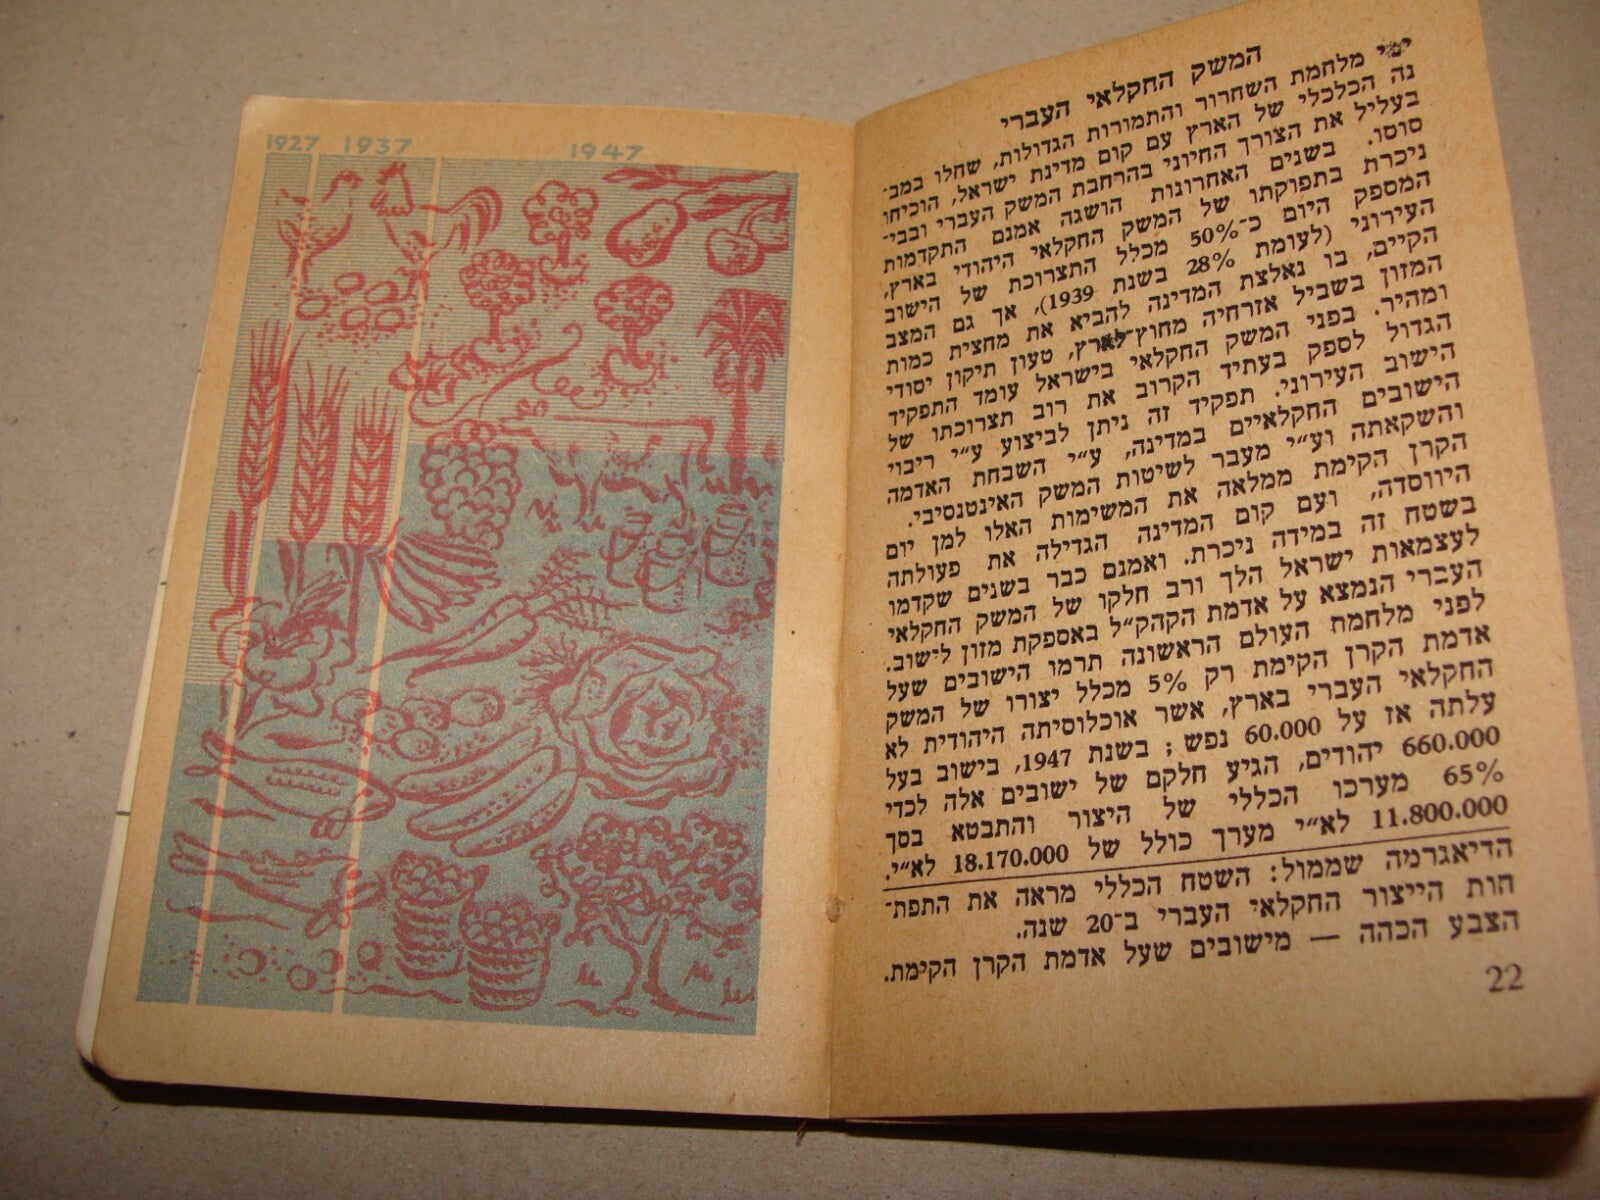 המשק החקלאי העברי
ימי מלחמת השחרור והתמורות הגדולות, שחלו במב־
נה הכלכלי של הארץ עם קום מדינת ישראל, הוכיחו
בעליל את הצורך החיוני בהרחבת המשק העברי ובבי־
סוסו. בשנים האחרונות הושגה אמנם התקדמות
ניכרת בתפוקתו של המשק החקלאי היהודי בארץ,
המספק היום כ־50% מכלל התצרוכת של הישוב
העירוני (לעומת 28% בשנת 1939), אך גם המצב
הקיים, בו נאלצת המדינה להביא את מחצית כמות
המזון בשביל אזרחיה מחוץ־לארץ, טעון תיקון יסודי
ומהיר. בפני המשק החקלאי בישראל עומד התפקיד
הגדול לספק בעתיד הקרוב את רוב תצרוכתו של
הישוב העירוני. תפקיד זה ניתן לביצוע ע״י ריבוי
הישובים החקלאיים במדינה, ע״י השבחת האדמה
והשקאתה וע״י מעבר לשיטות המשק האינטנסיבי.
הקרן הקימת ממלאה את המשימות האלו למן יום
היווסדה, ועם קום המדינה הגדילה את פעולתה
בשטח זה במידה ניכרת. ואמנם כבר בשנים שקדמו
לעצמאות ישראל הלך ורב חלקו של המשק החקלאי
העברי הנמצא על אדמת הקהק״ל באספקת מזון לישוב.
לפני מלחמת העולם הראשונה תרמו הישובים שעל
אדמת הקרן הקימת רק 5% מכלל יצורו של המשק
החקלאי העברי בארץ, אשר אוכלוסיתה היהודית לא
עלתה אז על 60.000 נפש; בשנת 1947, בישוב בעל
660.000 יהודים, הגיע חלקם של ישובים אלה לכדי
65% מערכו הכללי של היצור והתבטא בסך
11.800.000 לא״י מערך כולל של 18.170.000 לא״י.
הדיאגרמה שממול: השטח הכללי מראה את התפת־
חות הייצור החקלאי העברי ב־20 שנה.
הצבע הכהה — מישובים שעל אדמת הקרן הקימת.
22
1927 1937 1947